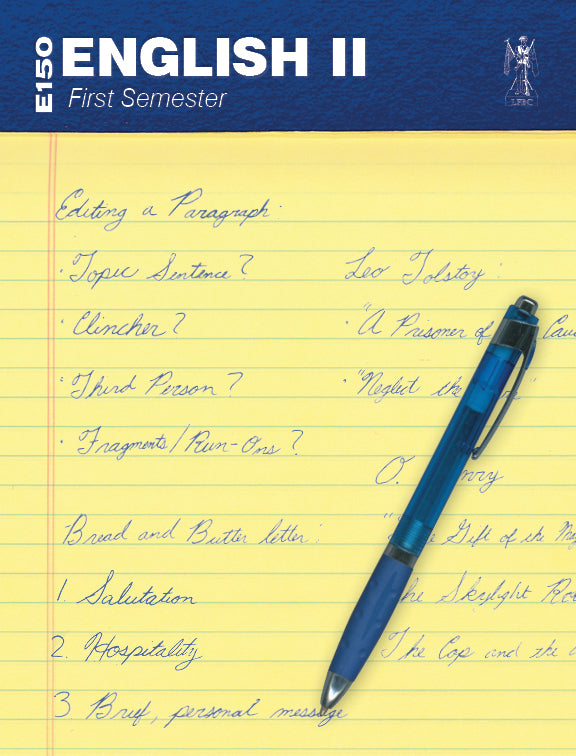 E150
ENGLISH II
First Semester
LFBC
Editing a Paragraph:
· Topic Sentence?
· Clincher?
· Third Person?
· Fragments/Run-Ons?
Bread and Butter letter:
1. Salutation
2. Hospitality
3 Brief, personal message
Leo Tolstoy:
· "A Prisoner of Cau
· "Neglect the re"
O. nry
" e Gift of the Mag
he Skylight Roo
The Cop and the a